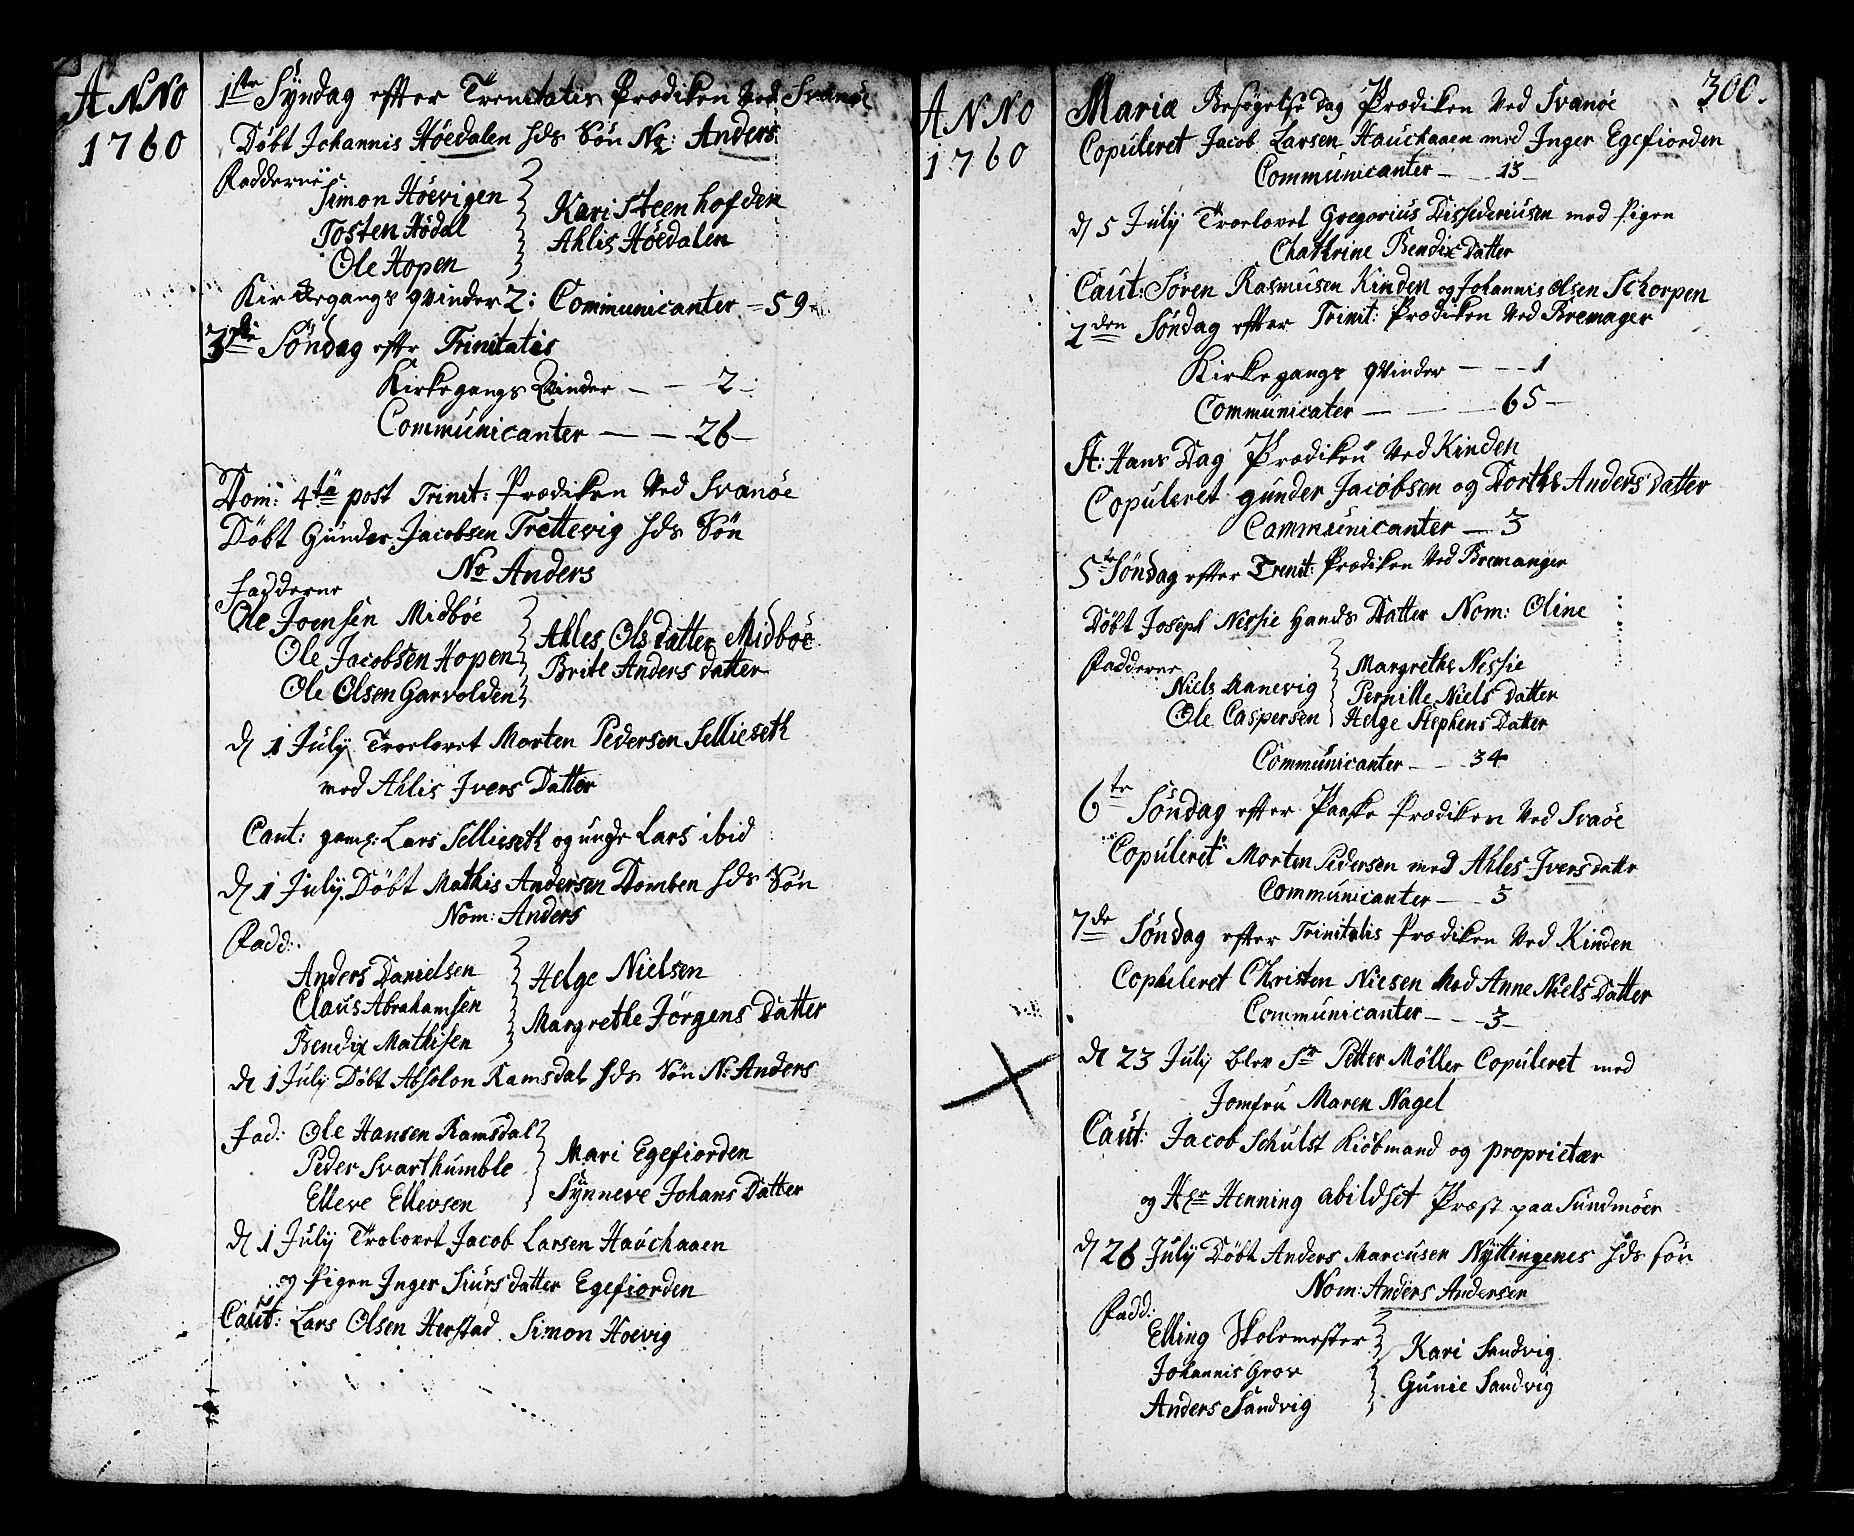 ANNO
1760
1ste Syndag efter Trenitatis Prædiken Ved Svanöe
Döbt Johannis Höedalen hds Sön No: Anders
Fadderne
Simon Höevigen
Tosten Hödal
Ole Hopen
Kari Steenhofden
Ahlis Höedalen
Kirkegangs qvinder 2: Communicanter – 59
3die Söndag efter Trinitatis
Kirkegangs Qvinder – – 2
Communicanter – – 26
Dom: 4ta post Trinit: Prædiken Ved Svanöe
Döbt Gunder Jacobsen Trettevig hds Sön
No Anders
Fadderne
Ole Joensen Midböe
Ole Jacobsen Hopen
Ole Olsen Garvolden
Ahles Ols datter Midböe
Brite Anders datter
d 1 July Troelovet Morten Pedersen Sellieseth
med Ahlis Ivers Datter
Caut: gaml: Lars Sellieseth og unge Lars ibid
d 1 July Döbt Mathis Andersen Domben hds Sön
Nom: Anders
Fadd:
Anders Danielsen
Claus Abrahamsen
Bendix Mathisen
Helge Nielsen
Margrethe Jörgens Datter
d 1 July Döbt Absolon Ramsdal hds Sön N: Anders
Fad: Ole Hansen Ramsdal
Peder Svarthumble
Elleve Ellevsen
Mari Egefiorden
Synneve Johans Datter
d 1 July Trolovet Jacob Larsen Hauchaaen
og Pigen Inger Siurs datter Egefiorden
Caut: Lars Olsen Herstad. Simon Hoevig
ANNO
1760
300.
Mariæ Besögelse dag Prædiken Ved Svanöe
Copuleret Jacob Larsen Hauchaaen med Inger Egefiorden
Communicanter – 13
d 5 July Troelovet Gregorius Dissideriusen med Pigen
Chathrine Bendix datter
Caut: Sören Rasmusen Kinden og Johannis Olsen Schorpen
2den Söndag efter Trinit: Prædiken Ved Bremager
Kirke gangs qvinder – – 1
Communicater – – 65
St: Hans Dag Prædiken Ved Kinden
Copuleret gunder Jacobsen og Dorthe Anders datter
Communicanter – 3
5te Söndag efter Trenit: Prædiken Ved Bremanger
Döbt Joseph Nessie hands Datter Nom: Oline
Fadderne
Niels Aanevig
Ole Caspersen
Margrethe Nessie
Pernille Niels Datter
Helge Stephens Datter
Communicanter – 34
6te Söndag efter Paaske Prædiken Ved Svaöe
Copuleret Morten Pedersen med Ahles Ivers datr
Communicanter – 3
7de Söndag efter Trinitatis Prædiken Ved Kinden
Copuleret Christen Niesen Med Anne Niels Datter
Communicanter – 3
d 23 July blev Sr Petter Möller Copuleret med
Jomfru Maren Nagel
Caut: Jacob Schulst Kiöbmand og proprietær
og Hr Henning abildset Præst paa Sundmöer
d 26 July Döbt Anders Marcusen Nyttingenes hds sön
Nom: Anders Andersen
Fadd:
Elling Skolemester
Johannis Grov
Anders Sandvig
Kari Sandvig
Gunie Sandvig